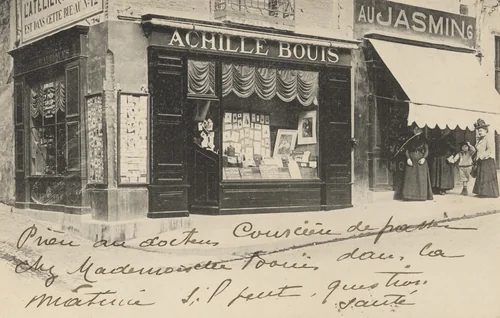 L'ATELIER
EST DANS CETTE RUE AU N° 12
ACHILLE BOUIS
AU JASMIN 6
Prière au docteur Coursière de passer
chez Mademoiselle dans la
matinée s'il peut, question
santé